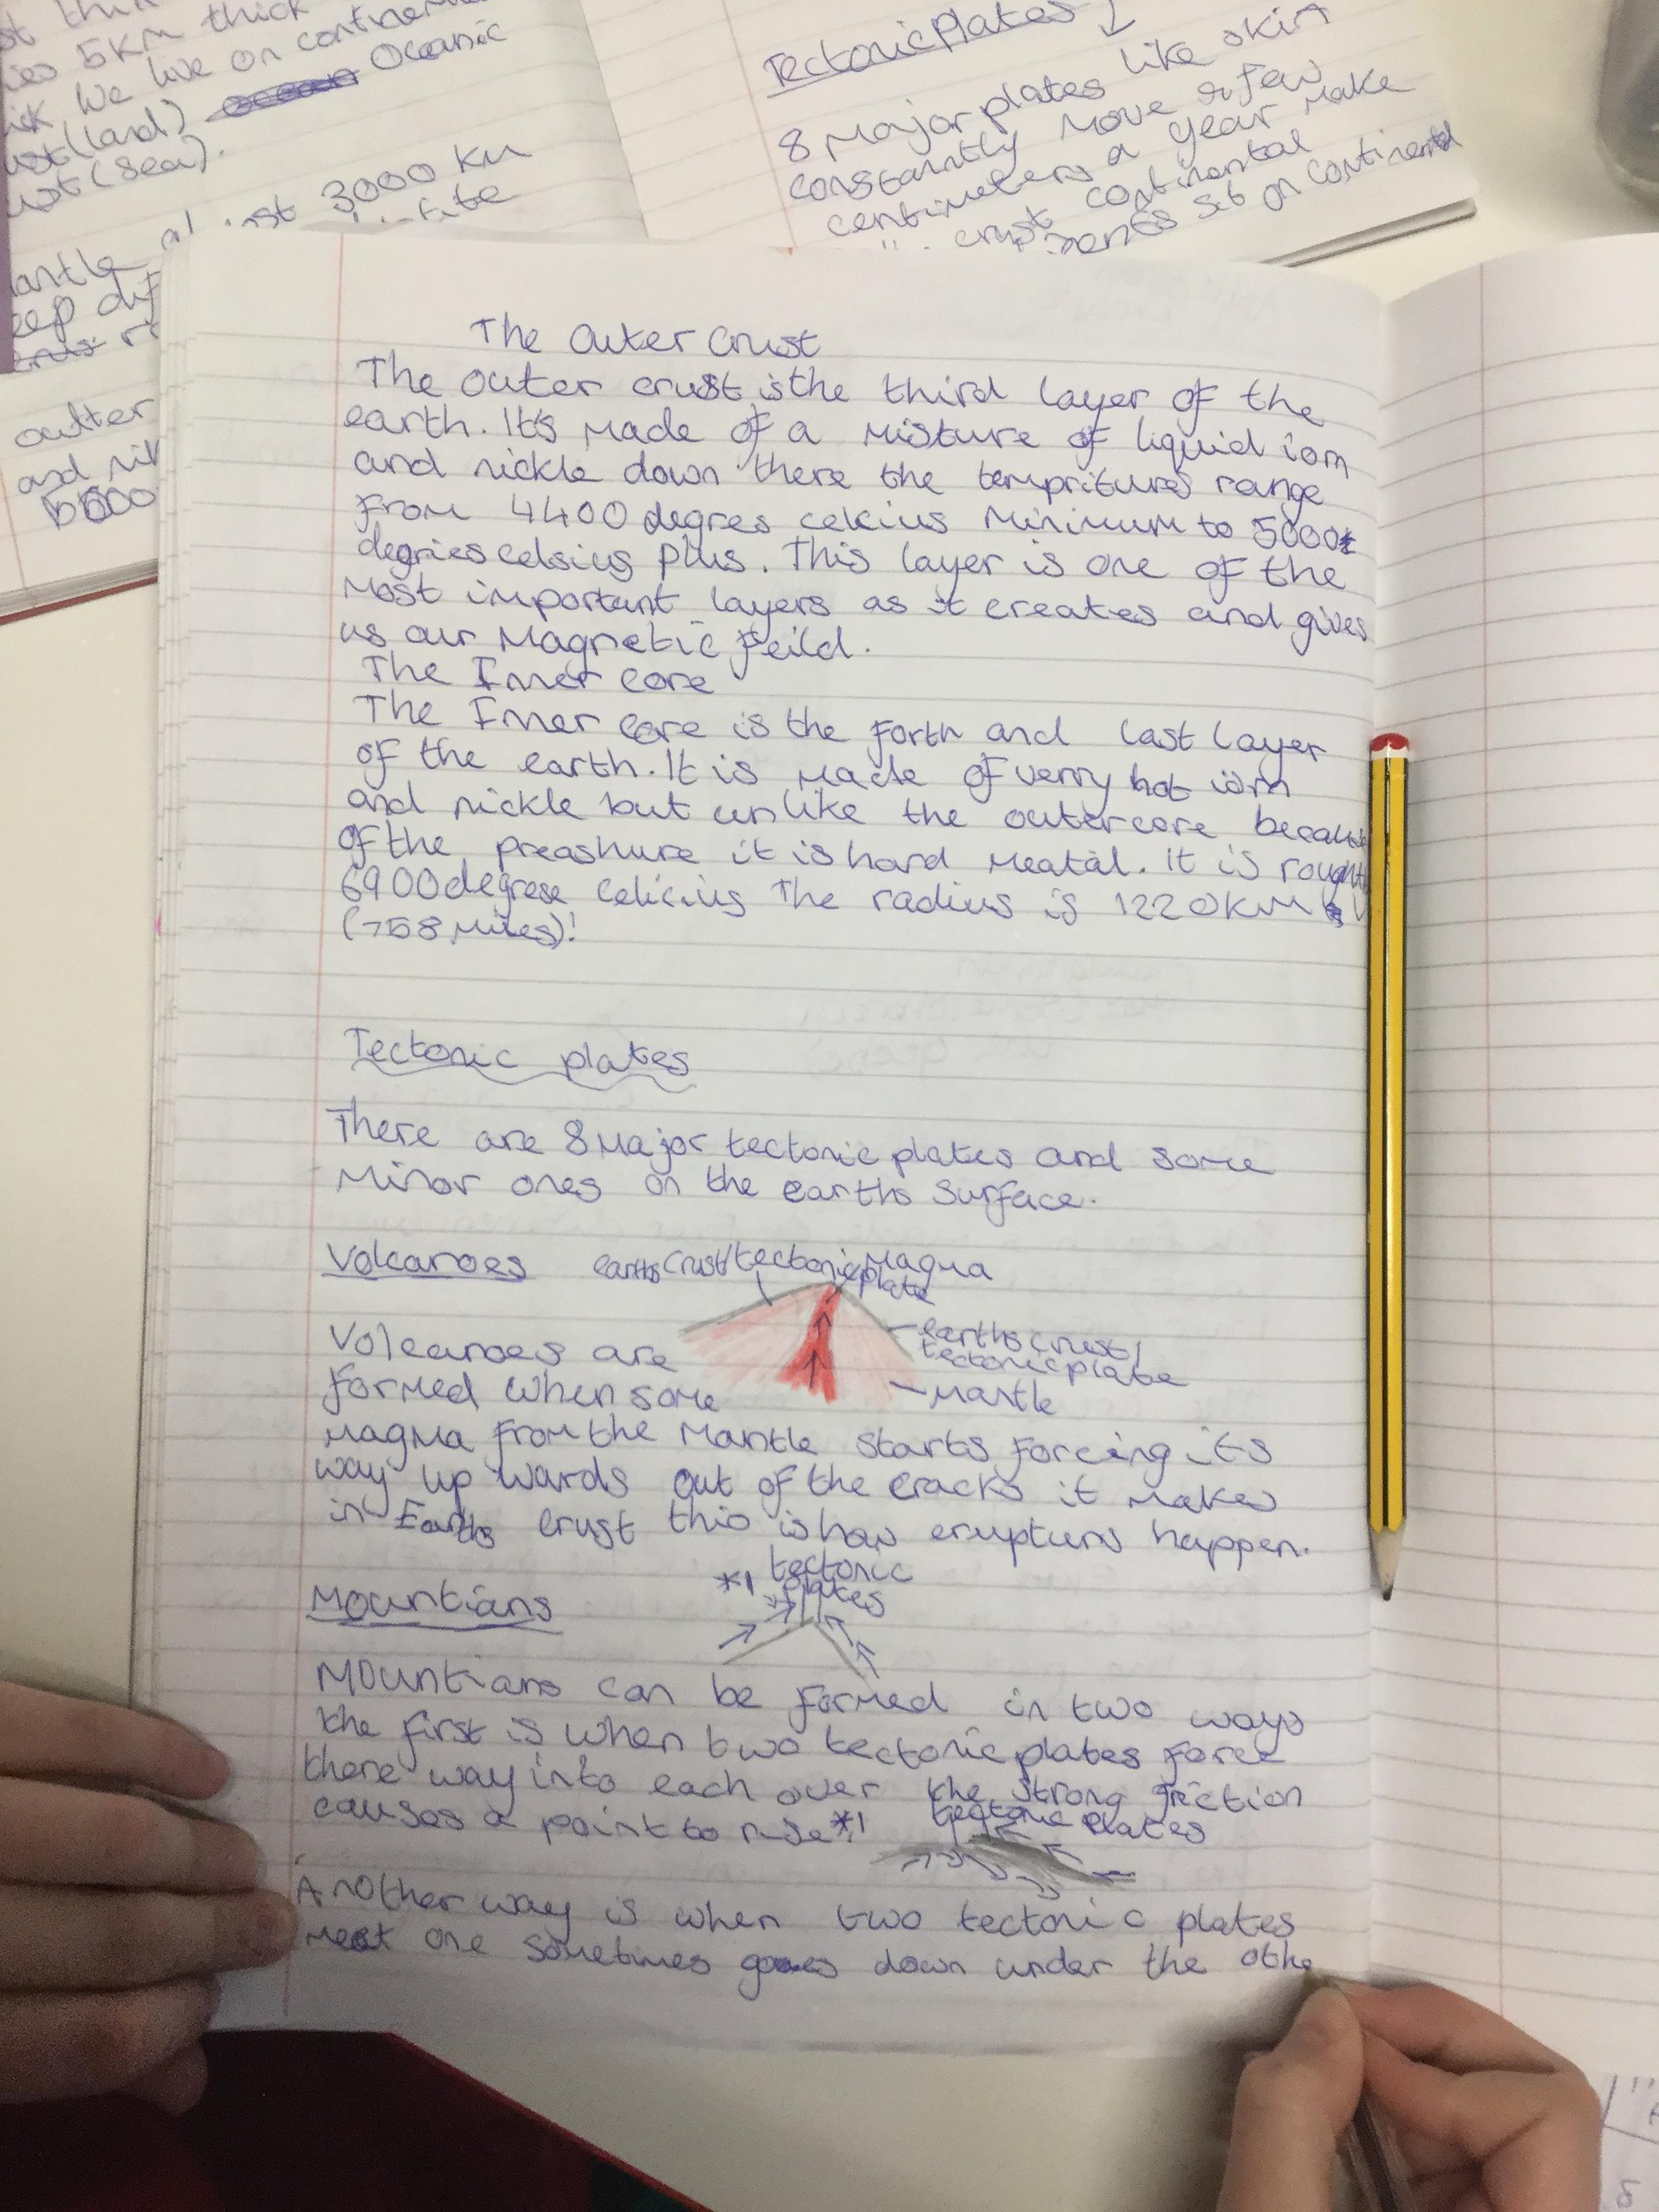 5km thick
we live on
(land) Oceanic
(sea).
3000 km
Tectonic plates
8 Major plates like skin
constantly move a few
centimeters a year make
crust continental
sit on continental
outter
and
The Outer Crust
The outer crust is the third layer of the
earth. It's made of a misture of liquid iorn
and nickle down there the tempritures range
from 4400 degres celcius minimum to 5000
degries celsius plus. This layer is one of the
most important layers as it creates and gives
us our magnetic feild.
The Inner core
The Inner core is the forth and last layer
of the earth. It is made of verry hot iorn
and nickle but unlike the outer core
of the preashure it is hard meatal. it is
6900 degrese celicius The radius is 1220KM
(758 miles)!
Tectonic plates
There are 8 major tectonic plates and some
minor ones on the earths surface.
Volcanoes
earths crust/tectonic plate
magma
earths crust/
tectonic plate
mantle
Volcanoes are
formed when some
magma from the mantle starts forcing its
way up wards out of the cracks it makes
in Earths crust this is how erupturs happen.
*1 tectonic
plates
Mountians
Mountians can be formed in two ways
the first is when two tectonic plates force
there way into each over the strong friction
causes a point to rise *1
tectonic plates
Another way is when two tectonic plates
meet one sometimes goes down under the othe